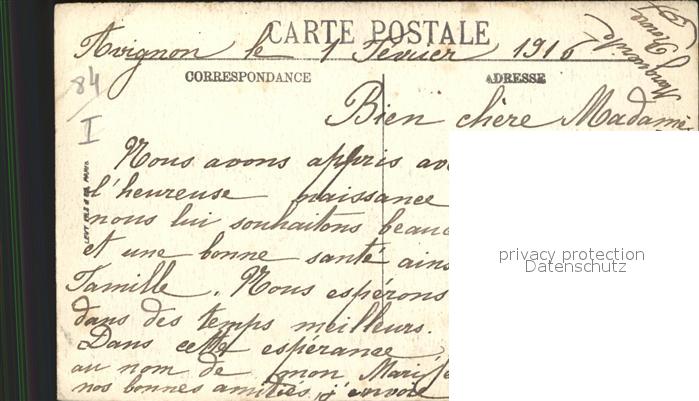 CARTE POSTALE
Avignon le 1 Février 1916
CORRESPONDANCE
ADRESSE
84
I
Bien chère Madame
Nous avons appris av
l'heureuse naissance
nous lui souhaitons beauc
et une bonne santé ains
famille. Nous espérons
dans des temps meilleurs.
Dans cette espérance
au nom de mon Mari
nos bonnes amitiés, j'envoie
LEVY FILS & CIE PARIS
Marguerite
privacy protection
Datenschutz